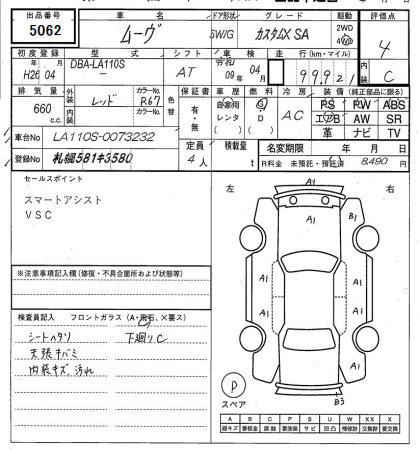 出品番号 車名 ドア形状 グレード 駆動 評価点
5062 ムーヴ 5W/G カスタムX SA 2WD 4WD 4
初度登録 型式 シフト 車検 走行(km・マイル) 内装
H26年 04月 DBA-LA110S - AT 09年 04月 99921 C
排気量 外装 カラーNo. 色替 保証書 車歴 燃料 冷房 装備(純正部品に限る)
660 c.c. レッド R67 有・無 自家用 レンタ G D AC PS PW ABS
内装 カラーNo. エアB AW SR
革 ナビ TV
車台No LA110S-0073232 定員 積載量 名変期限 年 月 日
登録No 札幌581キ3580 4人 t R料金 未預託・預託済 8,490円
セールスポイント
スマートアシスト
VSC
左 右
A1
A1 B1
A1 A1
A1 A1
※注意事項記入欄(修復・不具合箇所および状態等)
検査員記入 フロントガラス(A・飛石、X要ス)
シートヘタリ 下廻りC
天張キバミ
内装キズ、汚れ
P
スペア
B3
A B C P S U W X XX
線キズ 要板金 腐蝕 要塗装 サビ 凹凸 補修跡 交換跡 要交換